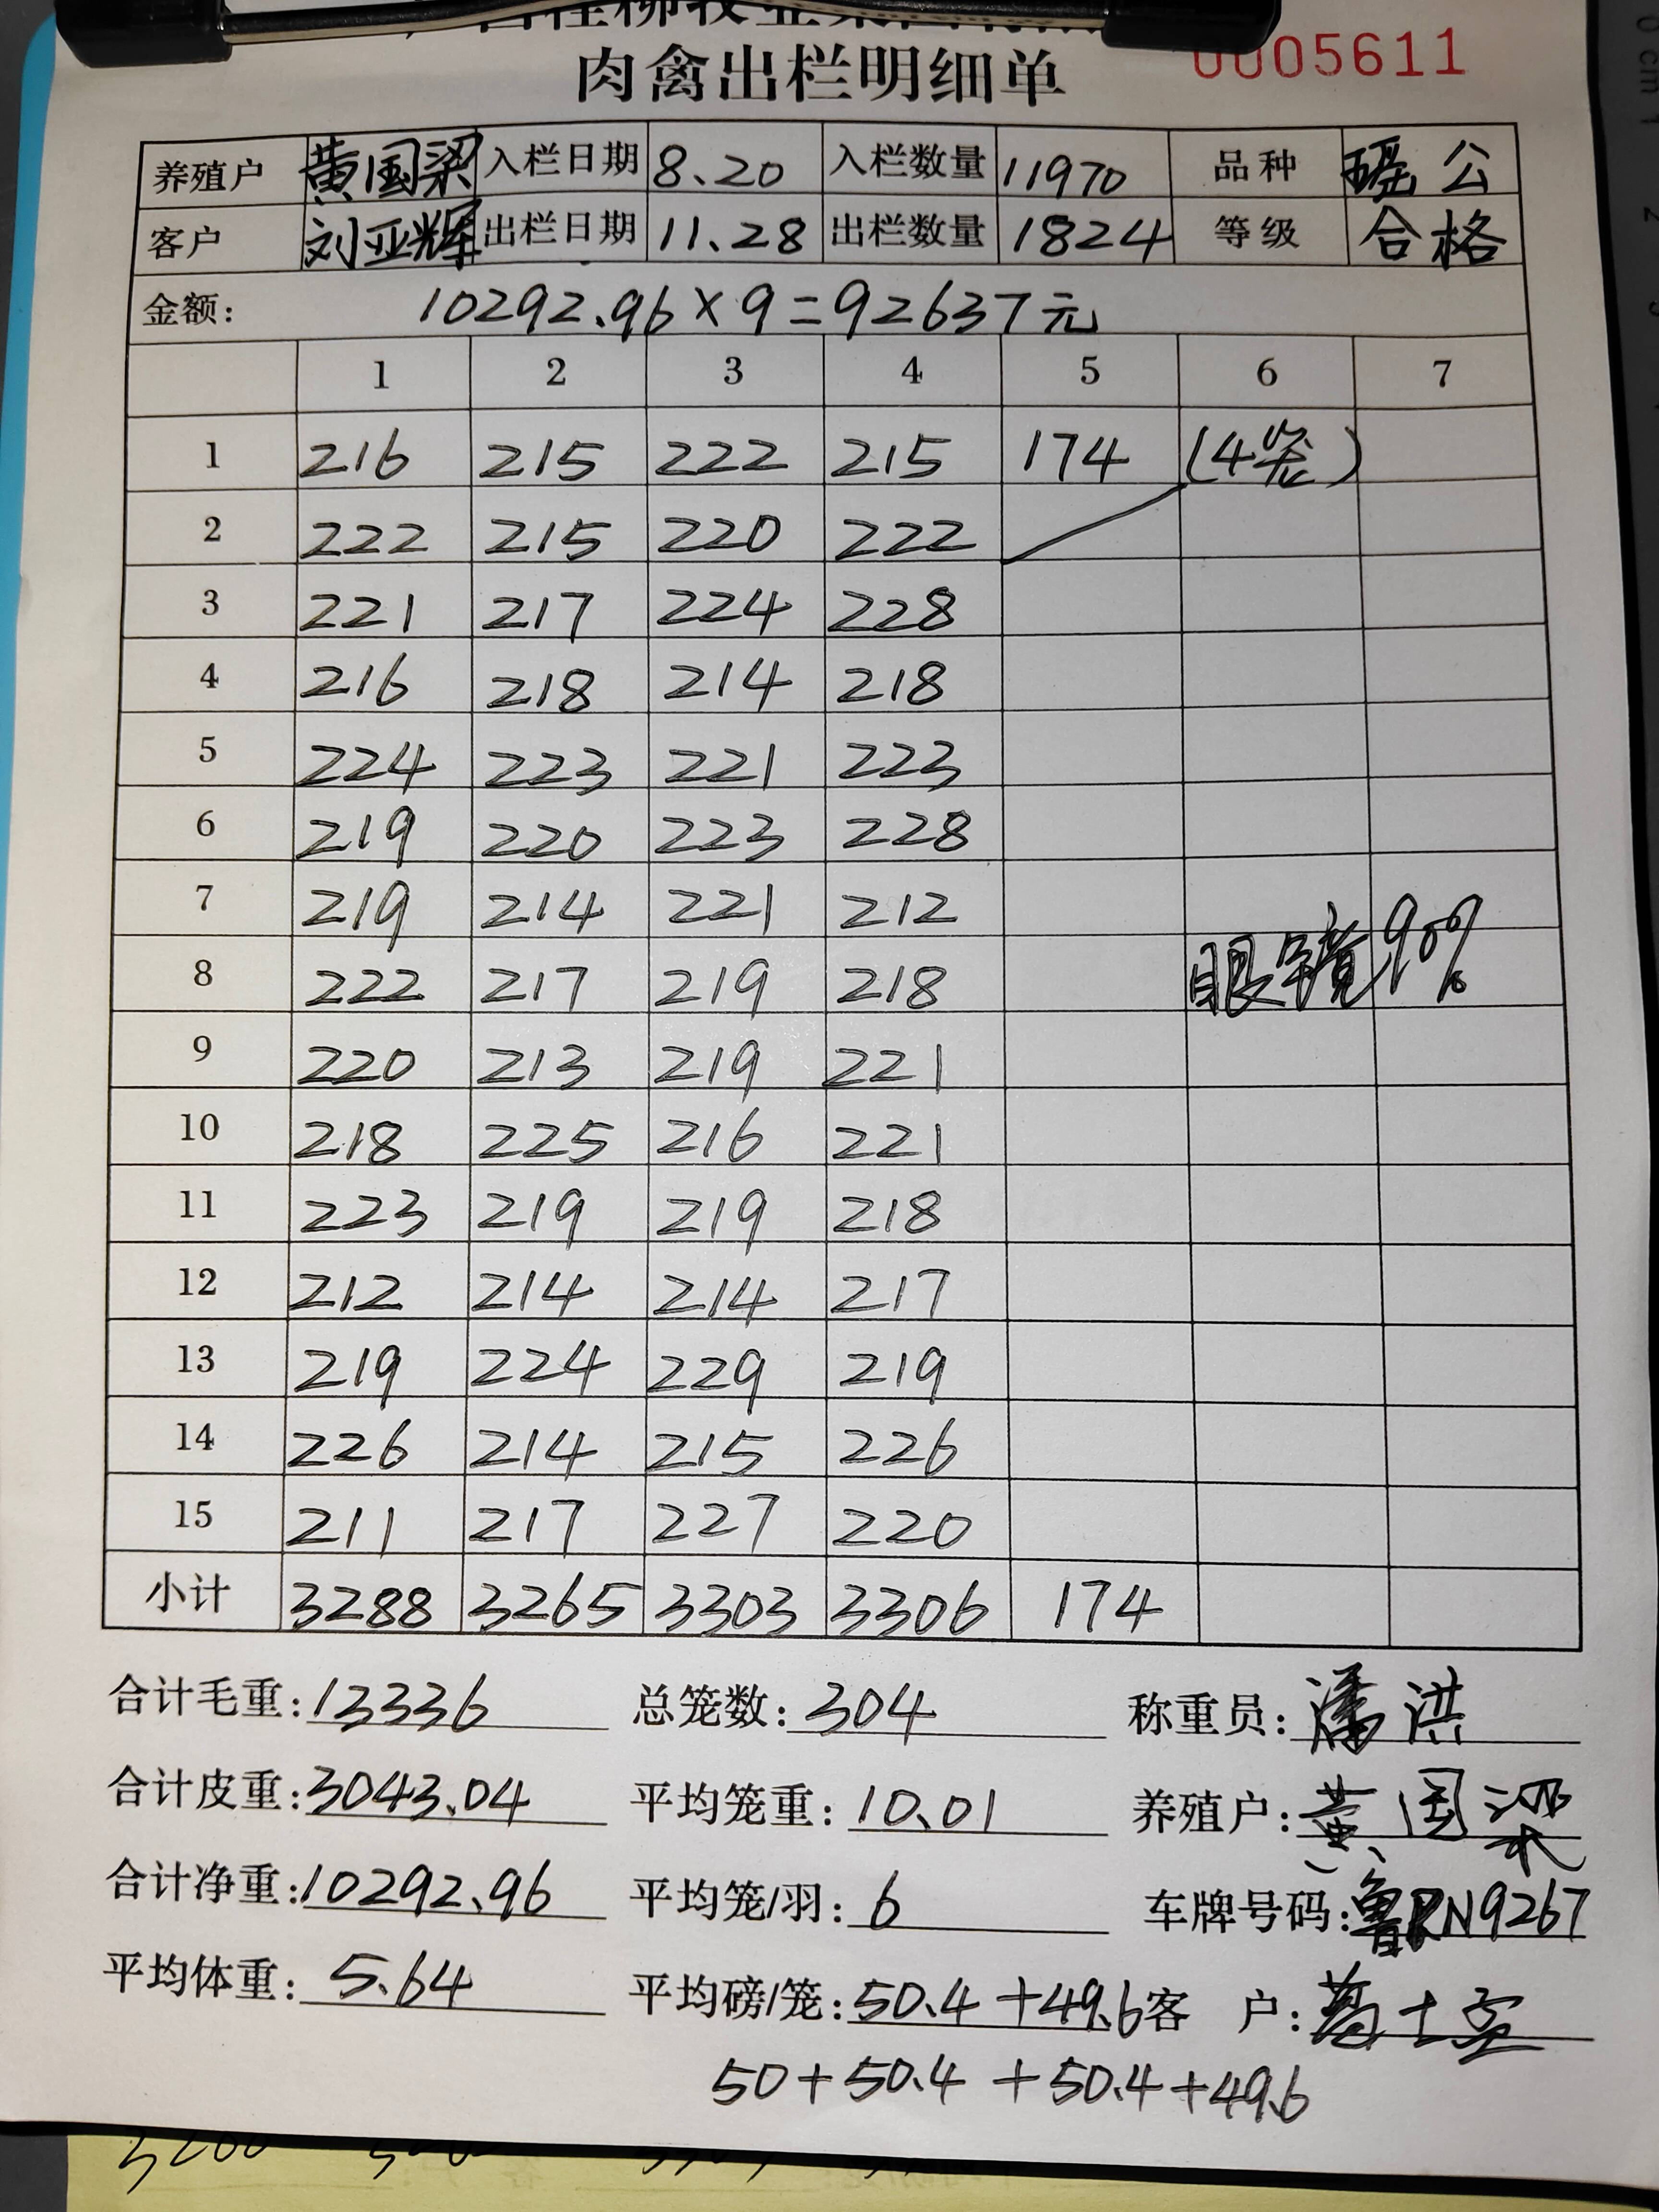 肉禽出栏明细单 0005611
养殖户 黄国梁 入栏日期 8.20 入栏数量 11970 品种 瑶公
客户 刘亚辉 出栏日期 11.28 出栏数量 1824 等级 合格
金额: 10292.96×9=92637元
1 2 3 4 5 6 7
1 216 215 222 215 174 (4笼)
2 222 215 220 222
3 221 217 224 228
4 216 218 214 218
5 224 223 221 223
6 219 220 223 228
7 219 214 221 212
8 222 217 219 218 眼镜90%
9 220 213 219 221
10 218 225 216 221
11 223 219 219 218
12 212 214 214 217
13 219 224 229 219
14 226 214 215 226
15 211 217 227 220
小计 3288 3265 3303 3306 174
合计毛重: 13336 总笼数: 304 称重员: 潘洪
合计皮重: 3043.04 平均笼重: 10.01 养殖户: 黄国梁
合计净重: 10292.96 平均笼/羽: 6 车牌号码: 鲁RN9267
平均体重: 5.64 平均磅/笼: 50.4+49.6 客户:
50+50.4+50.4+49.6